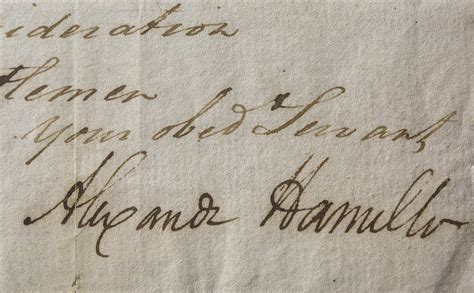 ideration
tlemen
Your obed Servant
Alexandr Hamilto